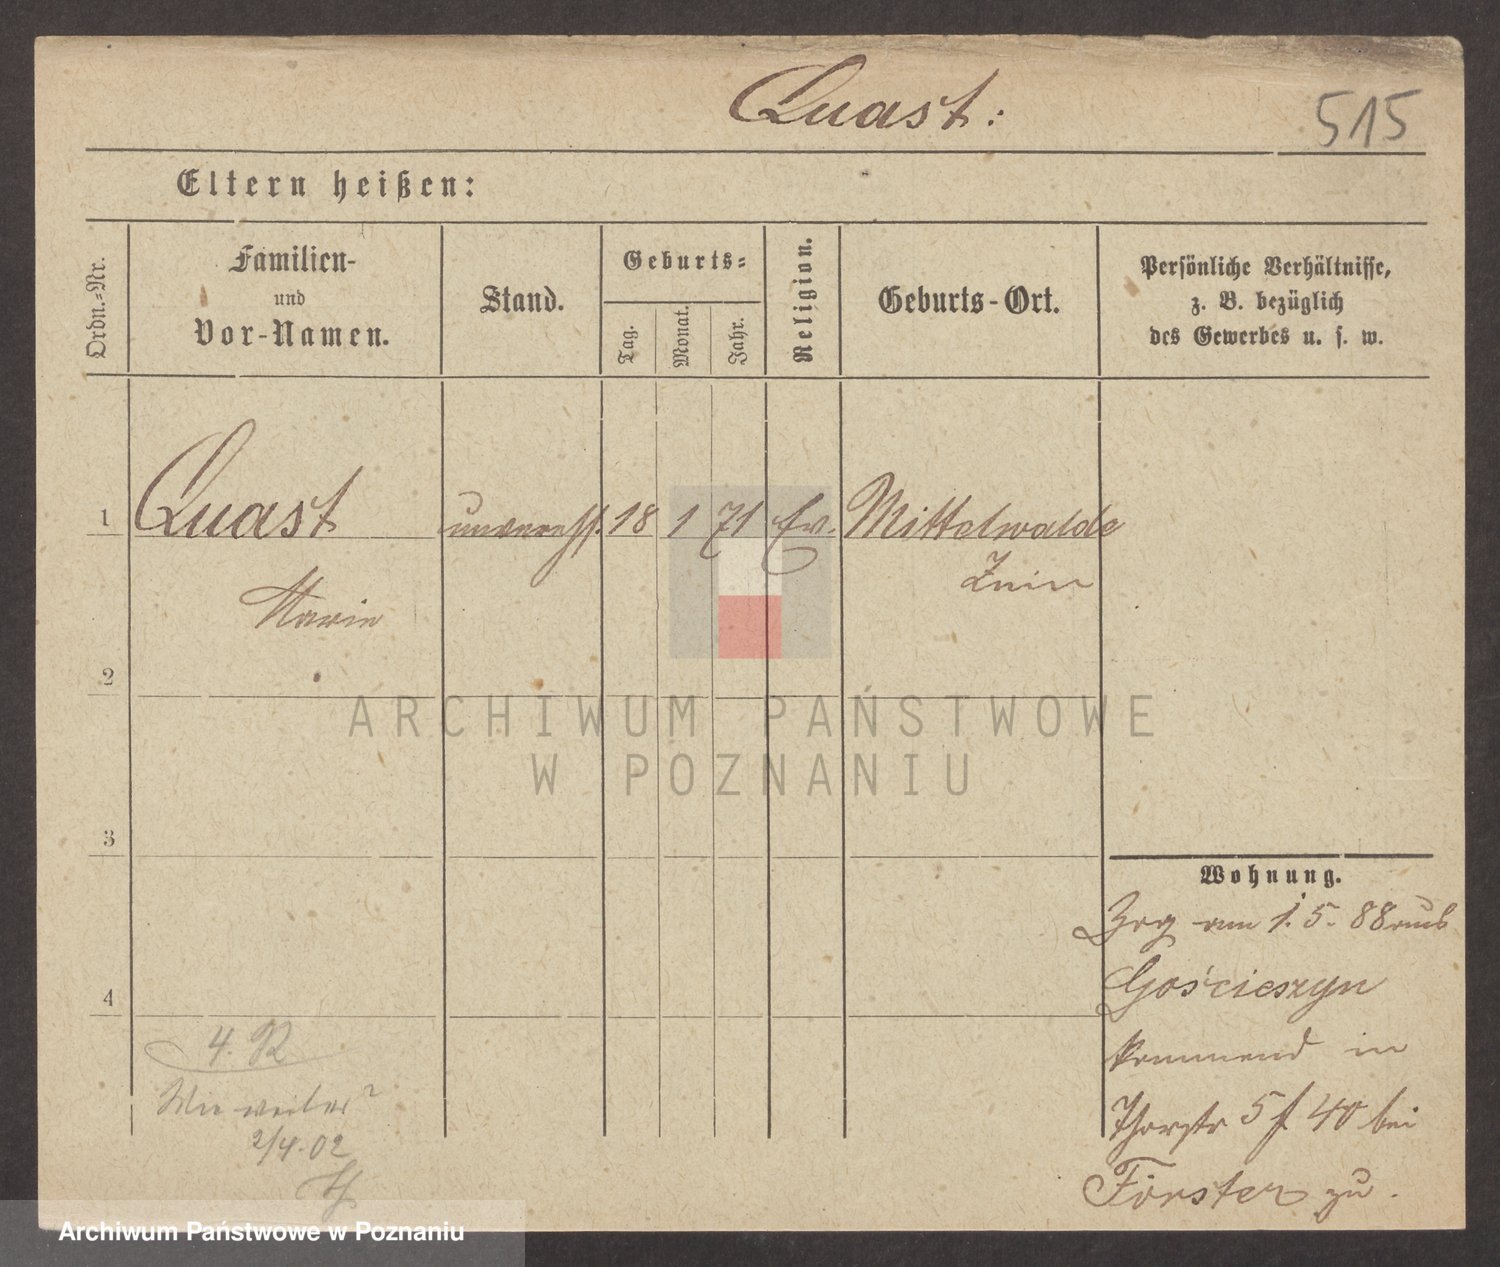 Quast:
515
Eltern heißen:
Ordn.-Nr.
Familien-
und
Vor-Namen.
Stand.
Geburts-
Tag.
Monat.
Jahr.
Religion.
Geburts-Ort.
Persönliche Verhältnisse,
z. B. bezüglich
des Gewerbes u. s. w.
1 Quast unverehl. 18 1 71 Ev. Mittelwalde
Znin
Marie
2
ARCHIWUM PAŃSTWOWE
W POZNANIU
3
Wohnung.
Zog am 1.5.88 aus
Gościeszyn
kommend in
Thorstr 5 f 40 bei
Förster zu.
4
4. 92
Wo weiter?
2/4.02
Archiwum Państwowe w Poznaniu